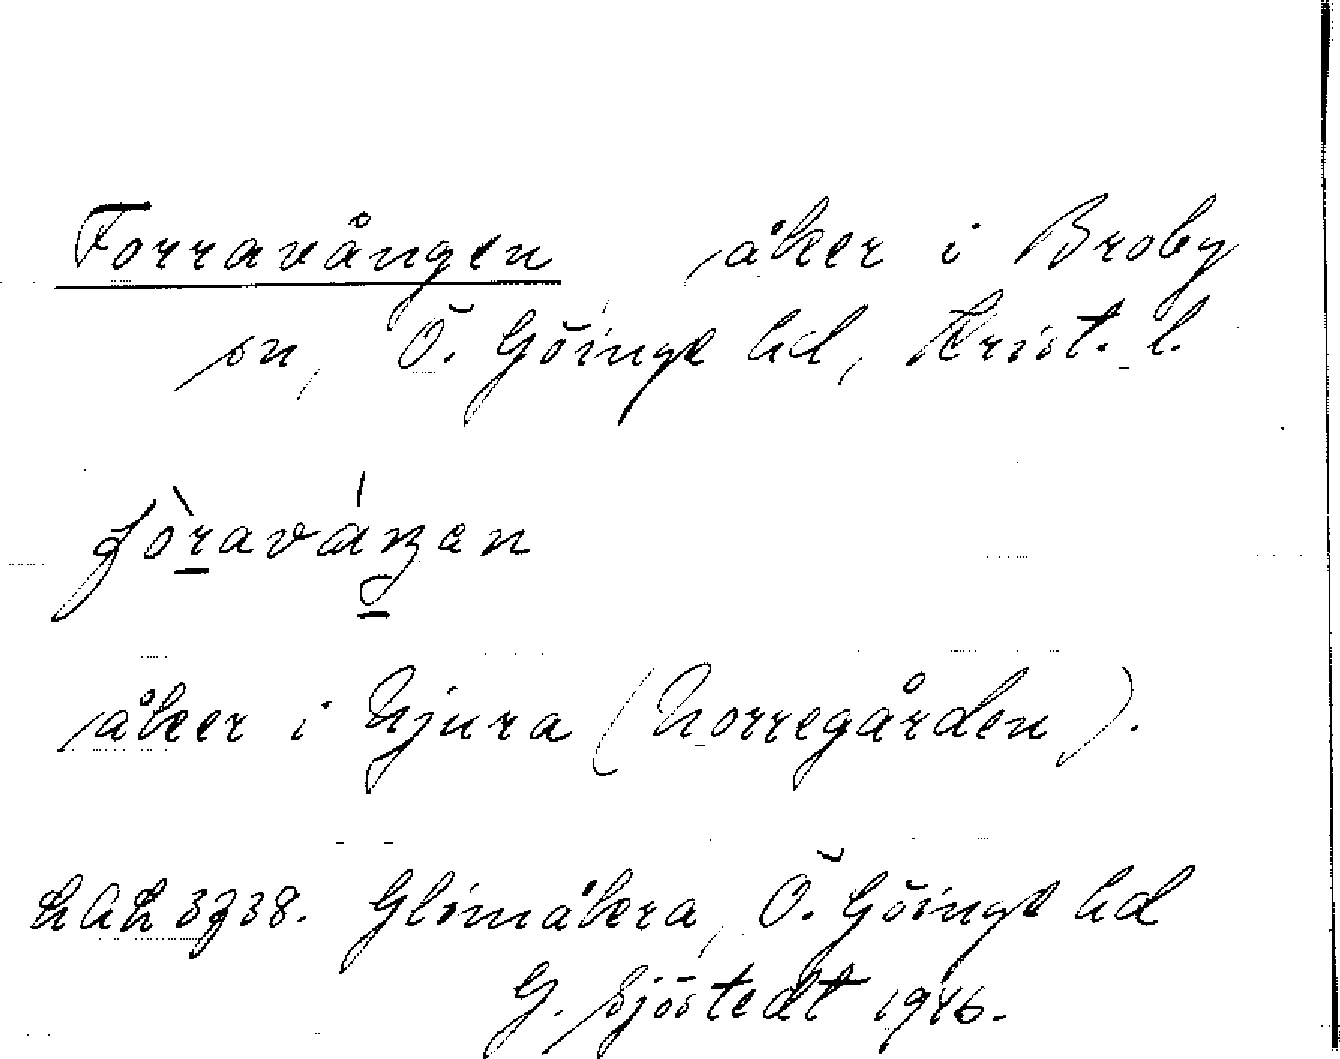 Forravången åker i Broby
sn, Ö. Göinge hd, Krist. l.
åker i Njura (Norregården).
LAL 3738. Glimåkra, Ö. Göinge hd
G. Sjöstedt 1946.